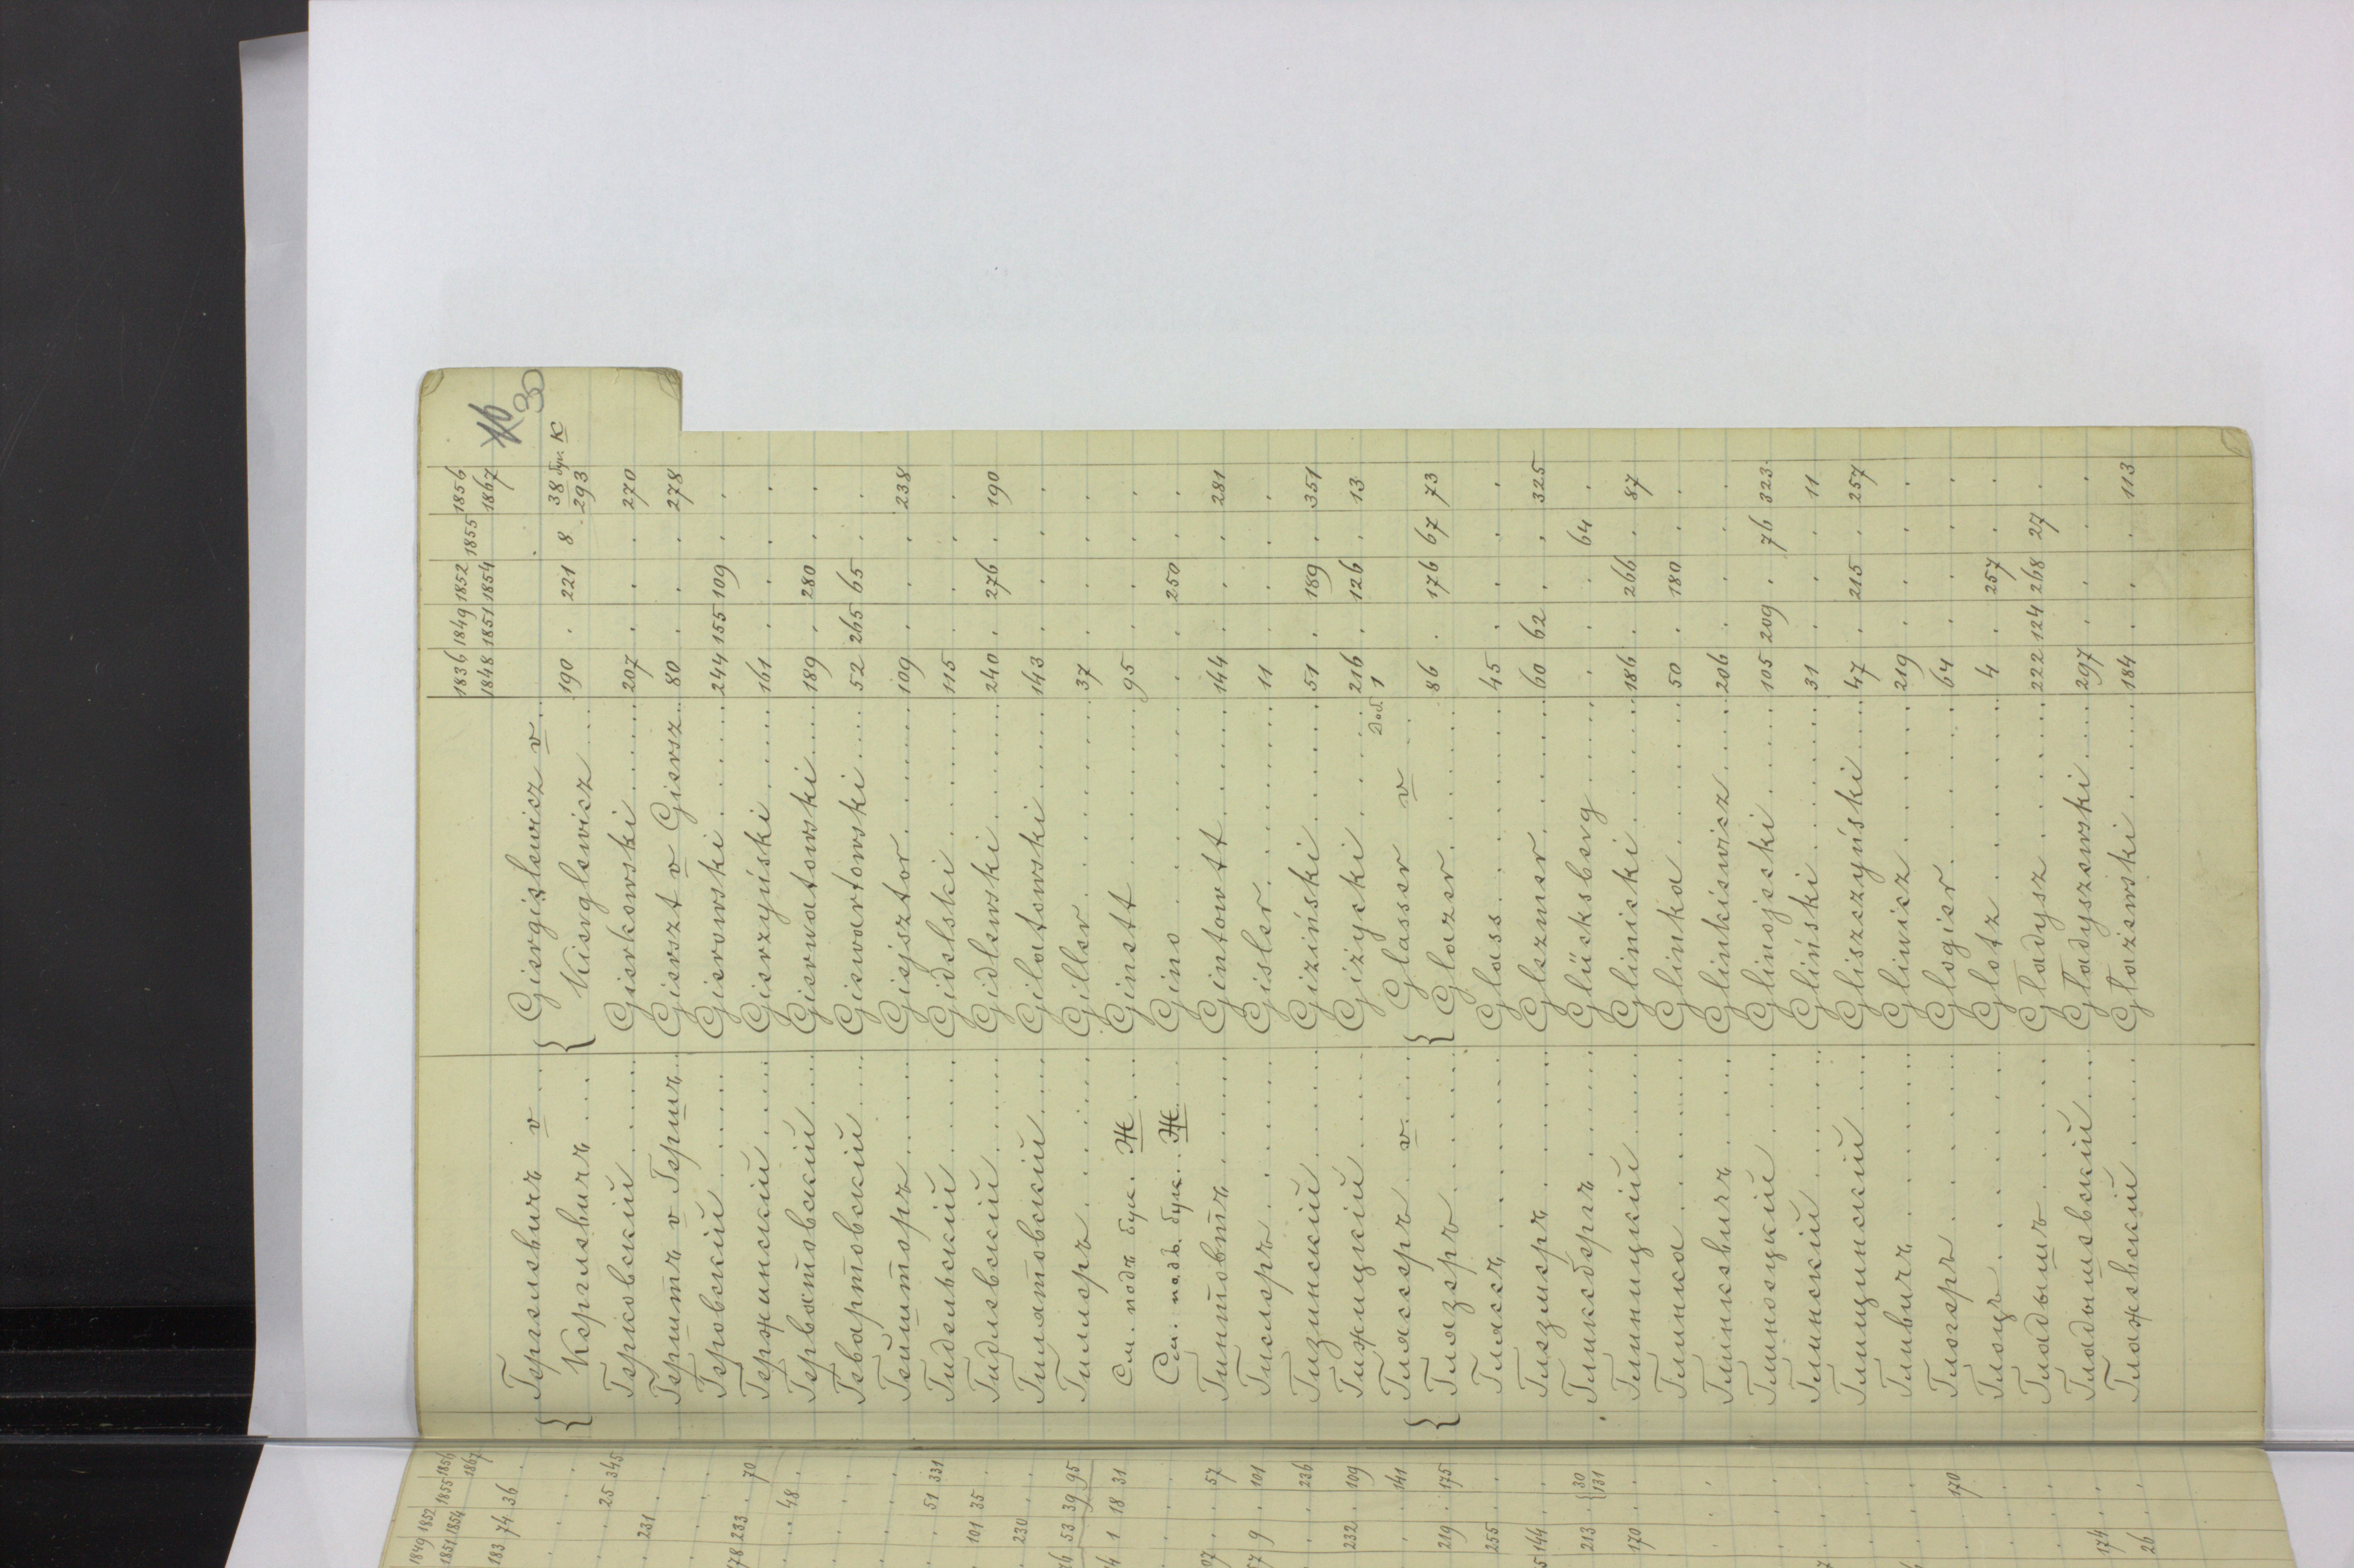 1836 1849 1852 1855 1856
1848 1851 1854 1867
30
Гергелевичъ v .... Giergielewicz v ...
Кергелевичъ .... Kierglewicz ... 190 . 221 8 38 бук. К 293
Герковскій ..... Gierkowski ..... 207 . . . 270
Герштъ v Гершъ .. Gierszt v Giersz .. 80 . . . 278
Геровскій ..... Gierowski ..... 244 155 109 . .
Гержинскій ..... Gierzyński ..... 161 . . . .
Герватовскій .... Gierwatowski .... 189 . 280 . .
Гевартовскій .... Giewartowski .... 52 265 65 . .
Гейшторъ ..... Giejsztor ..... 109 . . . 238
Гидельскій ..... Gidelski ..... 115 . . . .
Гидлевскій ..... Gidlewski ..... 240 . 276 . 190
Гилятовскій .... Gilatowski .... 143 . . . .
Гиллеръ ..... Giller ..... 37 . . . .
См. подъ бук. Ж .... Ginett ..... 95 . . . .
См. подъ бук. Ж .... Gino ..... . . 250 . .
Гинтовтъ ..... Gintowtt ..... 144 . . . 281
Гислеръ ..... Gisler ..... 11 . . . .
Гизинскій ..... Giziński ..... 51 . 189 . 351
Гижицкій ..... Giżycki ..... 216 . 126 . 13
доб. 1
Глясеръ v ... Glasser v ...
Глязеръ ..... Glazer ..... 86 . 176 67 73
Глясъ ..... Glass ..... 45 . . . .
Глезмеръ ..... Glezmer ..... 60 62 . . 325
Гликсбергъ ..... Glüksberg ..... . . . 64 .
Глиницкій ..... Glinicki ..... 186 . 266 . 87
Глинка ..... Glinka ..... 50 . 180 . .
Глинкевичъ ..... Glinkiewicz ..... 206 . . . .
Глиноецкій ..... Glinojecki ..... 105 209 . 76 323
Глинскій ..... Gliński ..... 31 . . . 11
Глищинскій ..... Gliszczyński .... 47 . 215 . 257
Гливичъ ..... Gliwicz ..... 219 . . . .
Глогеръ ..... Glogier ..... 64 . . . .
Глоцъ ..... Glotz ..... 4 . 257 . .
Гладышъ ..... Gładysz ..... 222 124 268 27 .
Гладышевскій .... Gładyszewski .... 297 . . . .
Глажевскій ..... Głażewski ..... 184 . . . 113
1849 1852 1855 1856
1851 1854 1867
183 74 36 .
. 25 345
231 .
78 233 . 70
. . 48 .
. 51 331
101 35 .
230 . .
76 53 39 95
1 18 31
. . 57
9 . 101
. . 236
232 . 109
. . 141
219 . 175
255 . .
144 . .
213 . {30 131
170 . .
. . 170
174 . .
26 . .